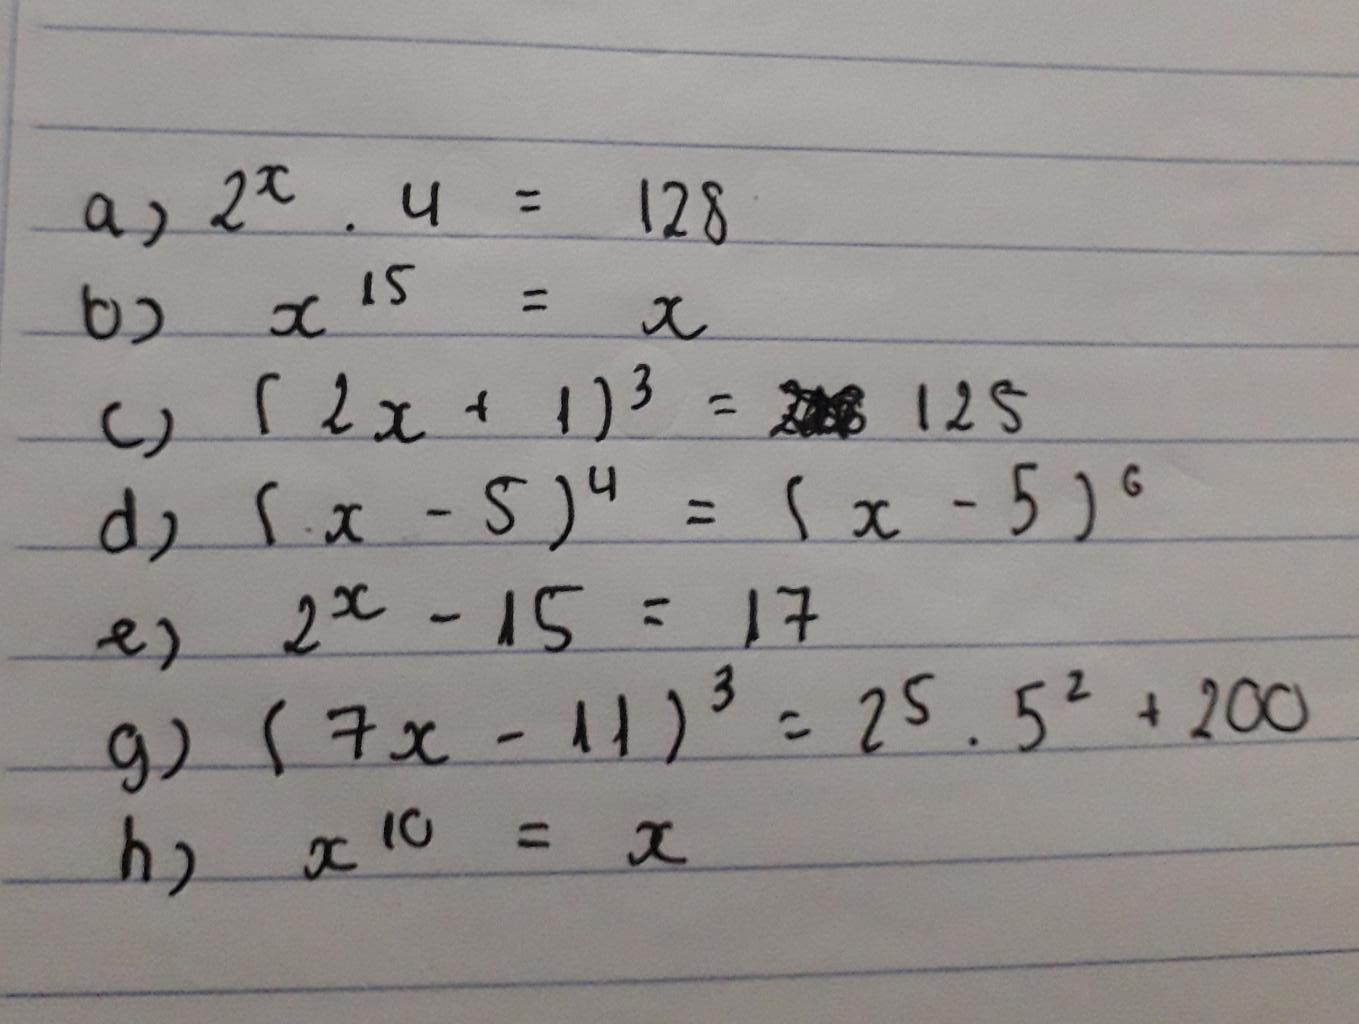 a) 2ˣ . 4 = 128
b) x¹⁵ = x
c) (2x + 1)³ = 125
d) (x - 5)⁴ = (x - 5)⁶
e) 2ˣ - 15 = 17
g) (7x - 11)³ = 2⁵ . 5² + 200
h) x¹⁰ = x